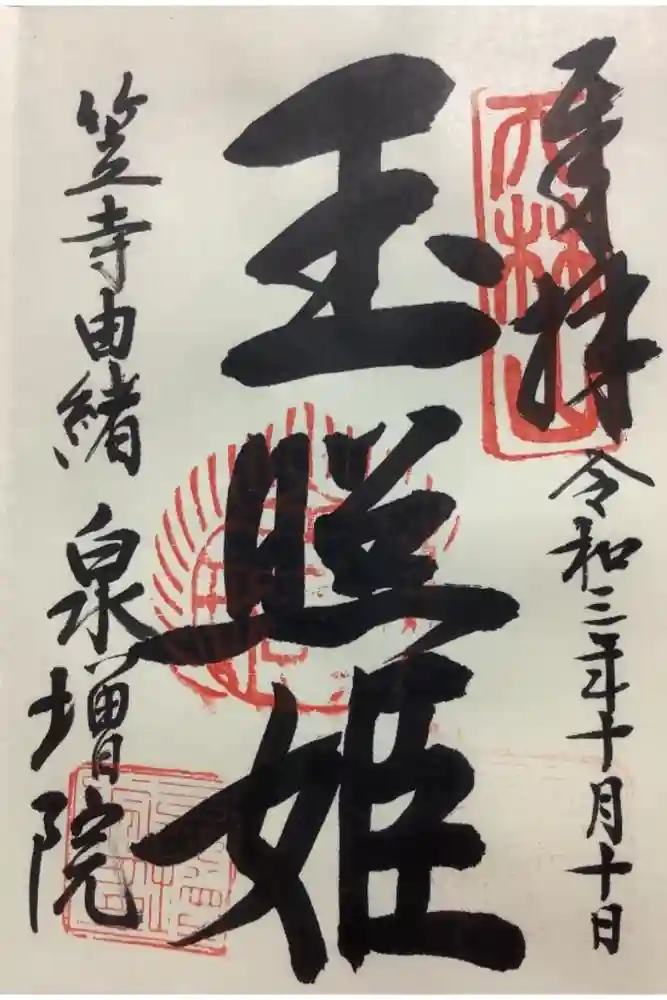 奉拝 令和三年十月十日
玉照姫
笠寺由緒 泉増院